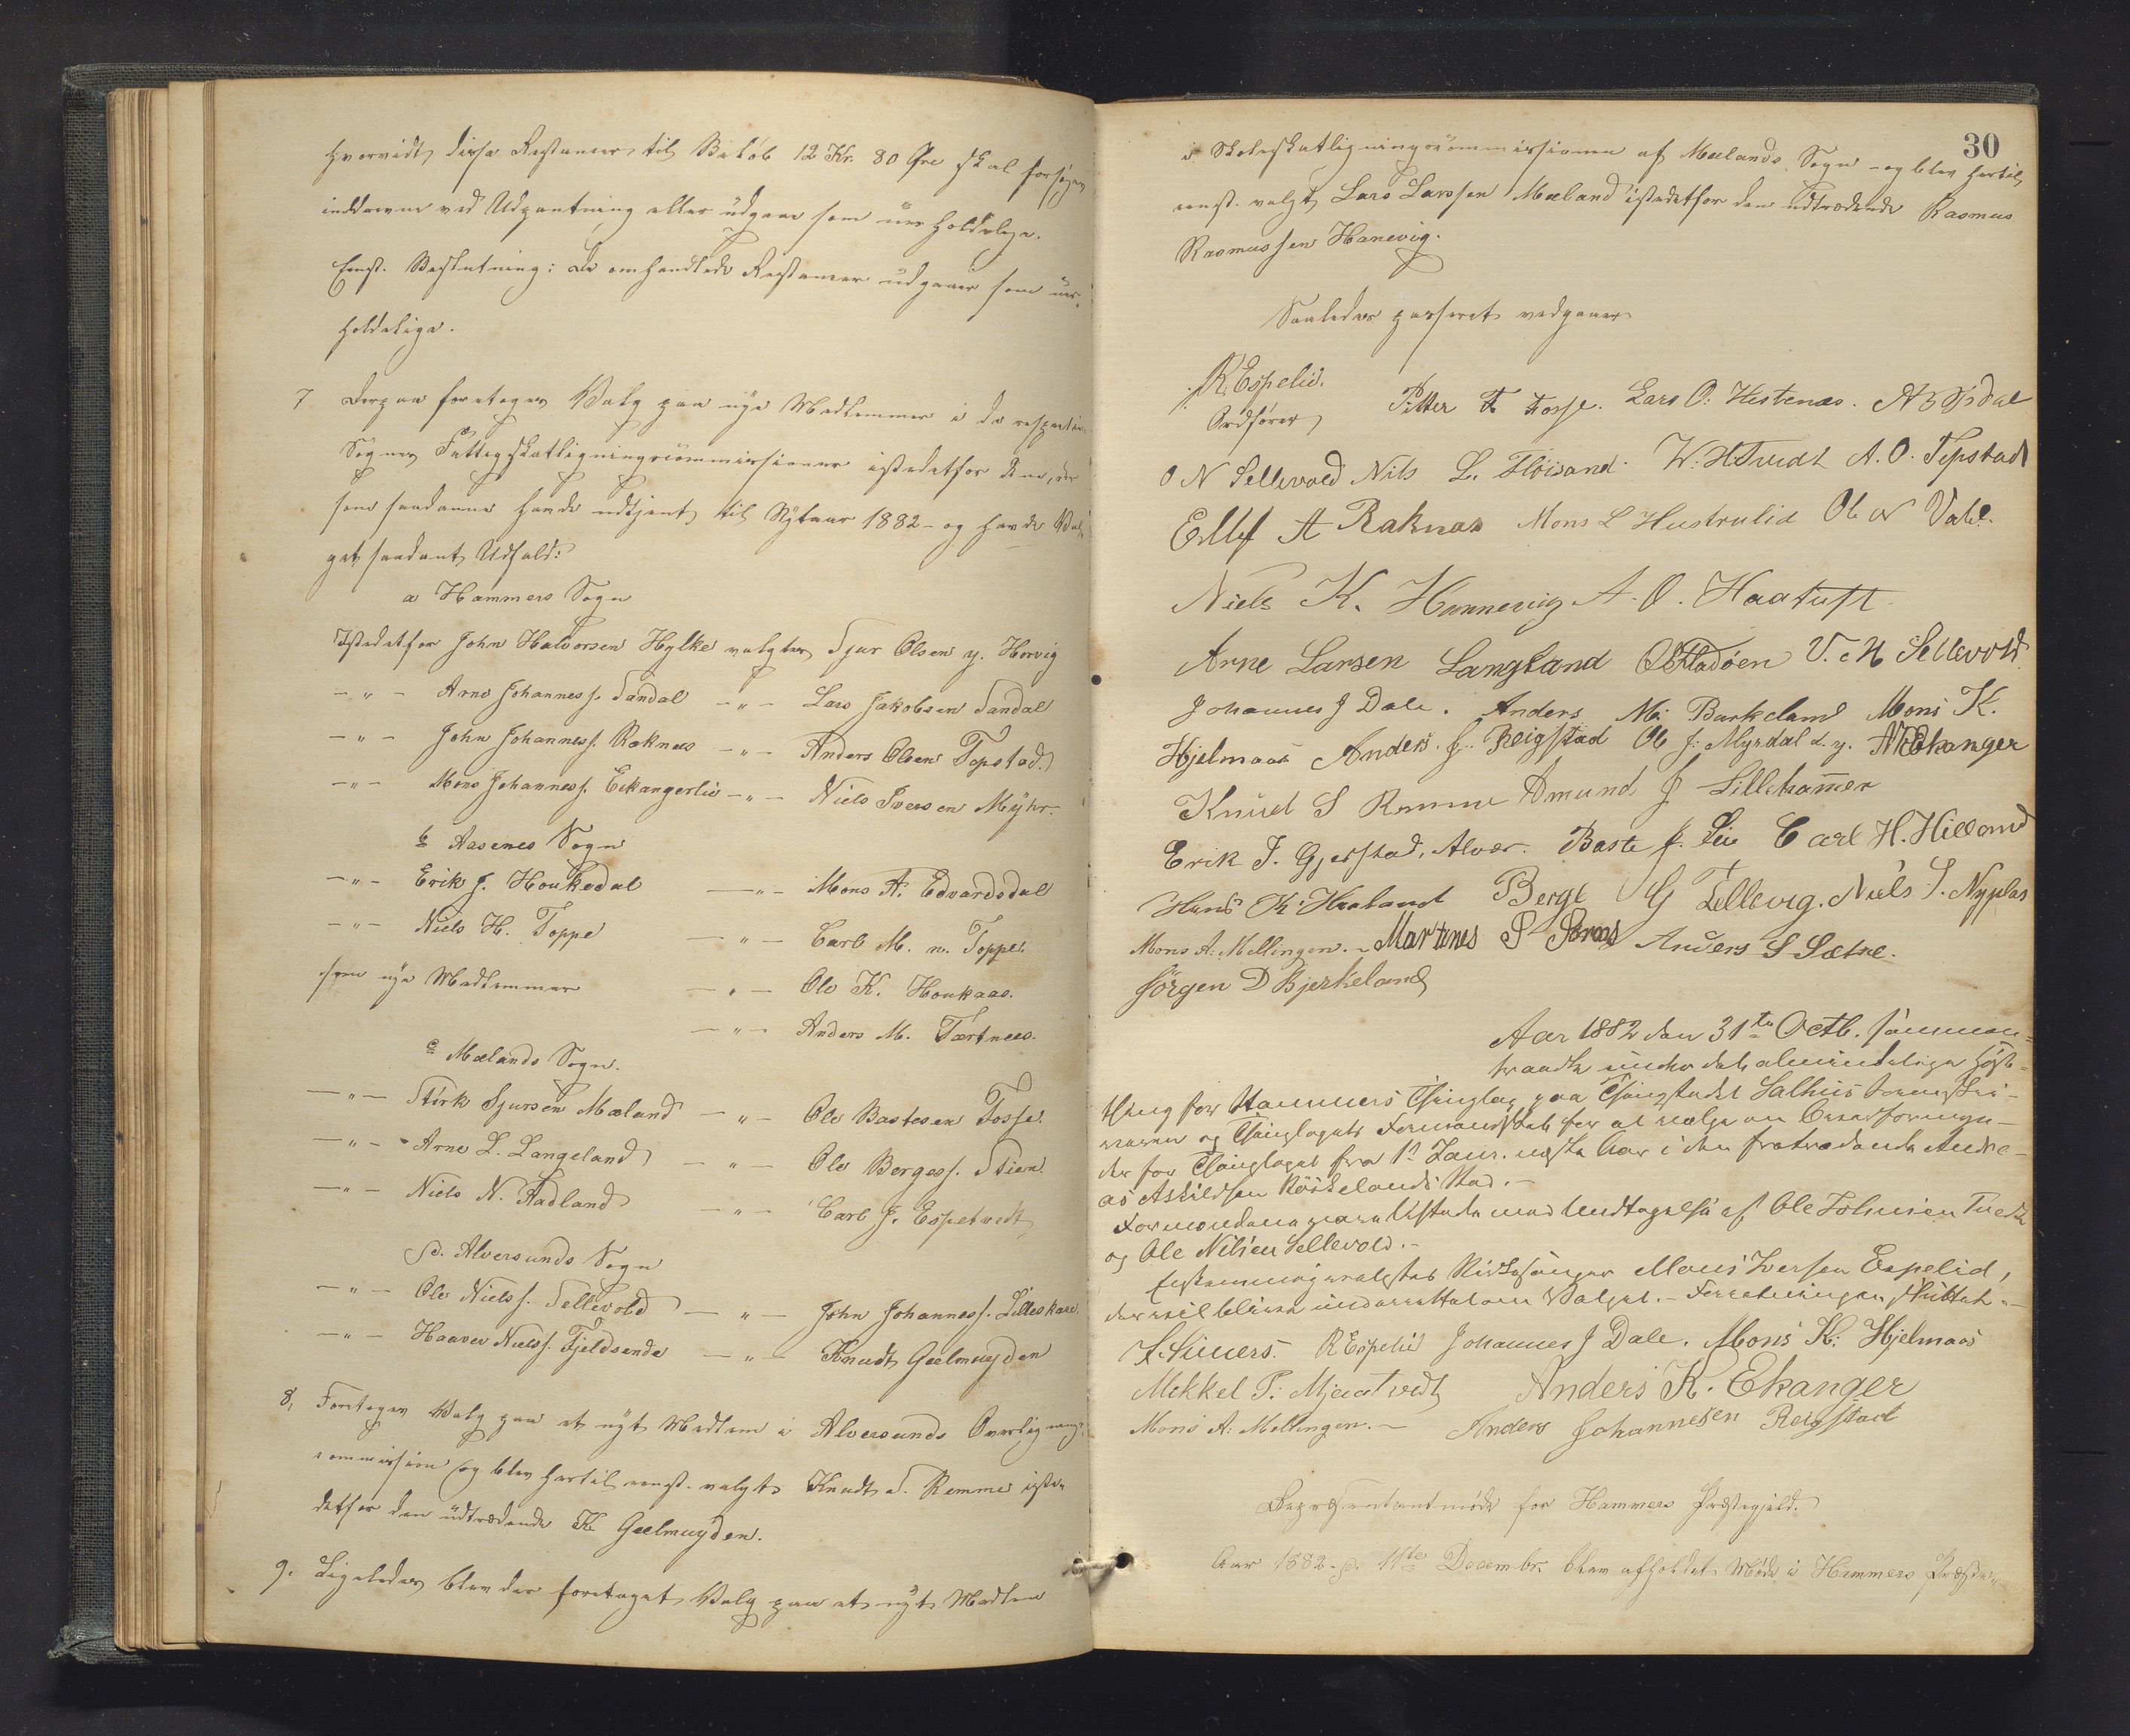 hvorvidt disse Restancer til Beløb 12 Kr. 80 Øre skal forsøges
inddrevne ved Udpantning eller udgaae som uerholdelige.
Enst. Beslutning: De omhandlede Restancer udgaaer som uer-
holdelige.
7 Derpaa foretages Valg paa nye Medlemmer i de respective
Sognes Fattigskatligningscommissioner istedetfor dem, der
som saadanne havde udtjent til Nytaar 1882 - og havde Val-
get saadant Udfald:
a Hammers Sogn
Istedetfor John Halvorsen Hylke valgtes Sjur Olsen y. Horvig
-"- Arne Johanness. Tandal -"- Lars Jakobsen Tandal
-"- John Johanness. Roknes -"- Anders Olsen Tepstad.
-"- Mons Johanness. Eikangerlie -"- Niels Iversen Myhr.
b Aasenes Sogn
-"- Erik J. Houkedal -"- Mons A. Edvardsdal
-"- Niels H. Toppe -"- Carl M. n. Toppe.
som nye Medlemmer -"- Ole K. Houkaas.
-"- Anders M. Tertnees.
c Mælands Sogn.
-"- Stirk Sjursen Mæland -"- Ole Bastesen Fosse.
-"- Arne L. Langeland -"- Ole Bergess. Stien.
-"- Niels N. Aadland -"- Carl J. Espetvedt
d. Alversunds Sogn
-"- Ole Nielss. Sellevold -"- John Johanness. Lilleskare.
-"- Haaver Nielss. Fjeldsende -"- Knudt Geelmuyden
8, Foretages Valg paa et nyt Medlem i Alversunds Overlignings-
commission og blev hertil enst. valgt Knudt S. Remme iste-
detfor den udtrædende K. Geelmuyden.
9. Ligeledes blev der foretaget Valg paa et nyt Medlem
30
i Skoleskatligningscommissionen af Mælands Sogn - og blev hertil
enst. valgt Lars Larssen Mæland istedetfor den udtrædende Rasmus
Rasmussen Hanevig.
Saaledes passeret vedgaaes
R. Espelid.
Ordfører
Pitter F Fosse. Lars O: Hestenæs.
O N Sellevold Nils L. Fløisand. A. O. Tepstad
Ellef A Raknæs Mons L Hustrulid Ole N Vale.
Niels K. Hannevig A. O. Haatuft
Arne Larsen Langeland O Fladøen V. N Sellevold
Johannes J Dale. Anders M: Barkeland Mons K.
Hjelmaas Anders J. Reigstad Ole J: Myrdal d. y. A K Ekanger
Knud S Remme Amund J Lillehammer
Erik J. Gjerstad, Alvær. Baste J. Lie Carl H. Hilland
Hans K: Haaland Berge G Tellevig. Niels S. Nypløs
Mons A: Mellingen. - Martines S Anders S Sætre.
Jørgen D Bjerkeland
Aar 1882 den 31te Octb. sammen-
traadte under det almindelige Høst-
thing for Hammers Thinglag paa Thingstedet Salhus Sorenskri-
veren og Thinglagets Formandskab for at vælge en Overformyn-
der for Thinglaget fra 1ste Janr. næste Aar i den fratrædende Andre-
as Askildsen Röskelands Sted. -
Formændene vare tilstede med Undtagelse af Ole Johnsen Tvedt
og Ole Nilsen Sellevold. -
Enstemmig valgtes Kirkesanger Mons Iversen Espelid,
der vil blive underrettet om Valget. - Forretningen sluttet. -
R Espelid Johannes J Dale. Mons K: Hjelmaas
Mekkel P: Mjaatvedt Anders K. Ekanger
Mons A: Mellingen. - Anders Johannesen Reigstad
Repræsentantmøde for Hammers Præstegjeld.
Aar 1882 d. 11te Decembr. blev afholdet Møde i Hammers Præste-